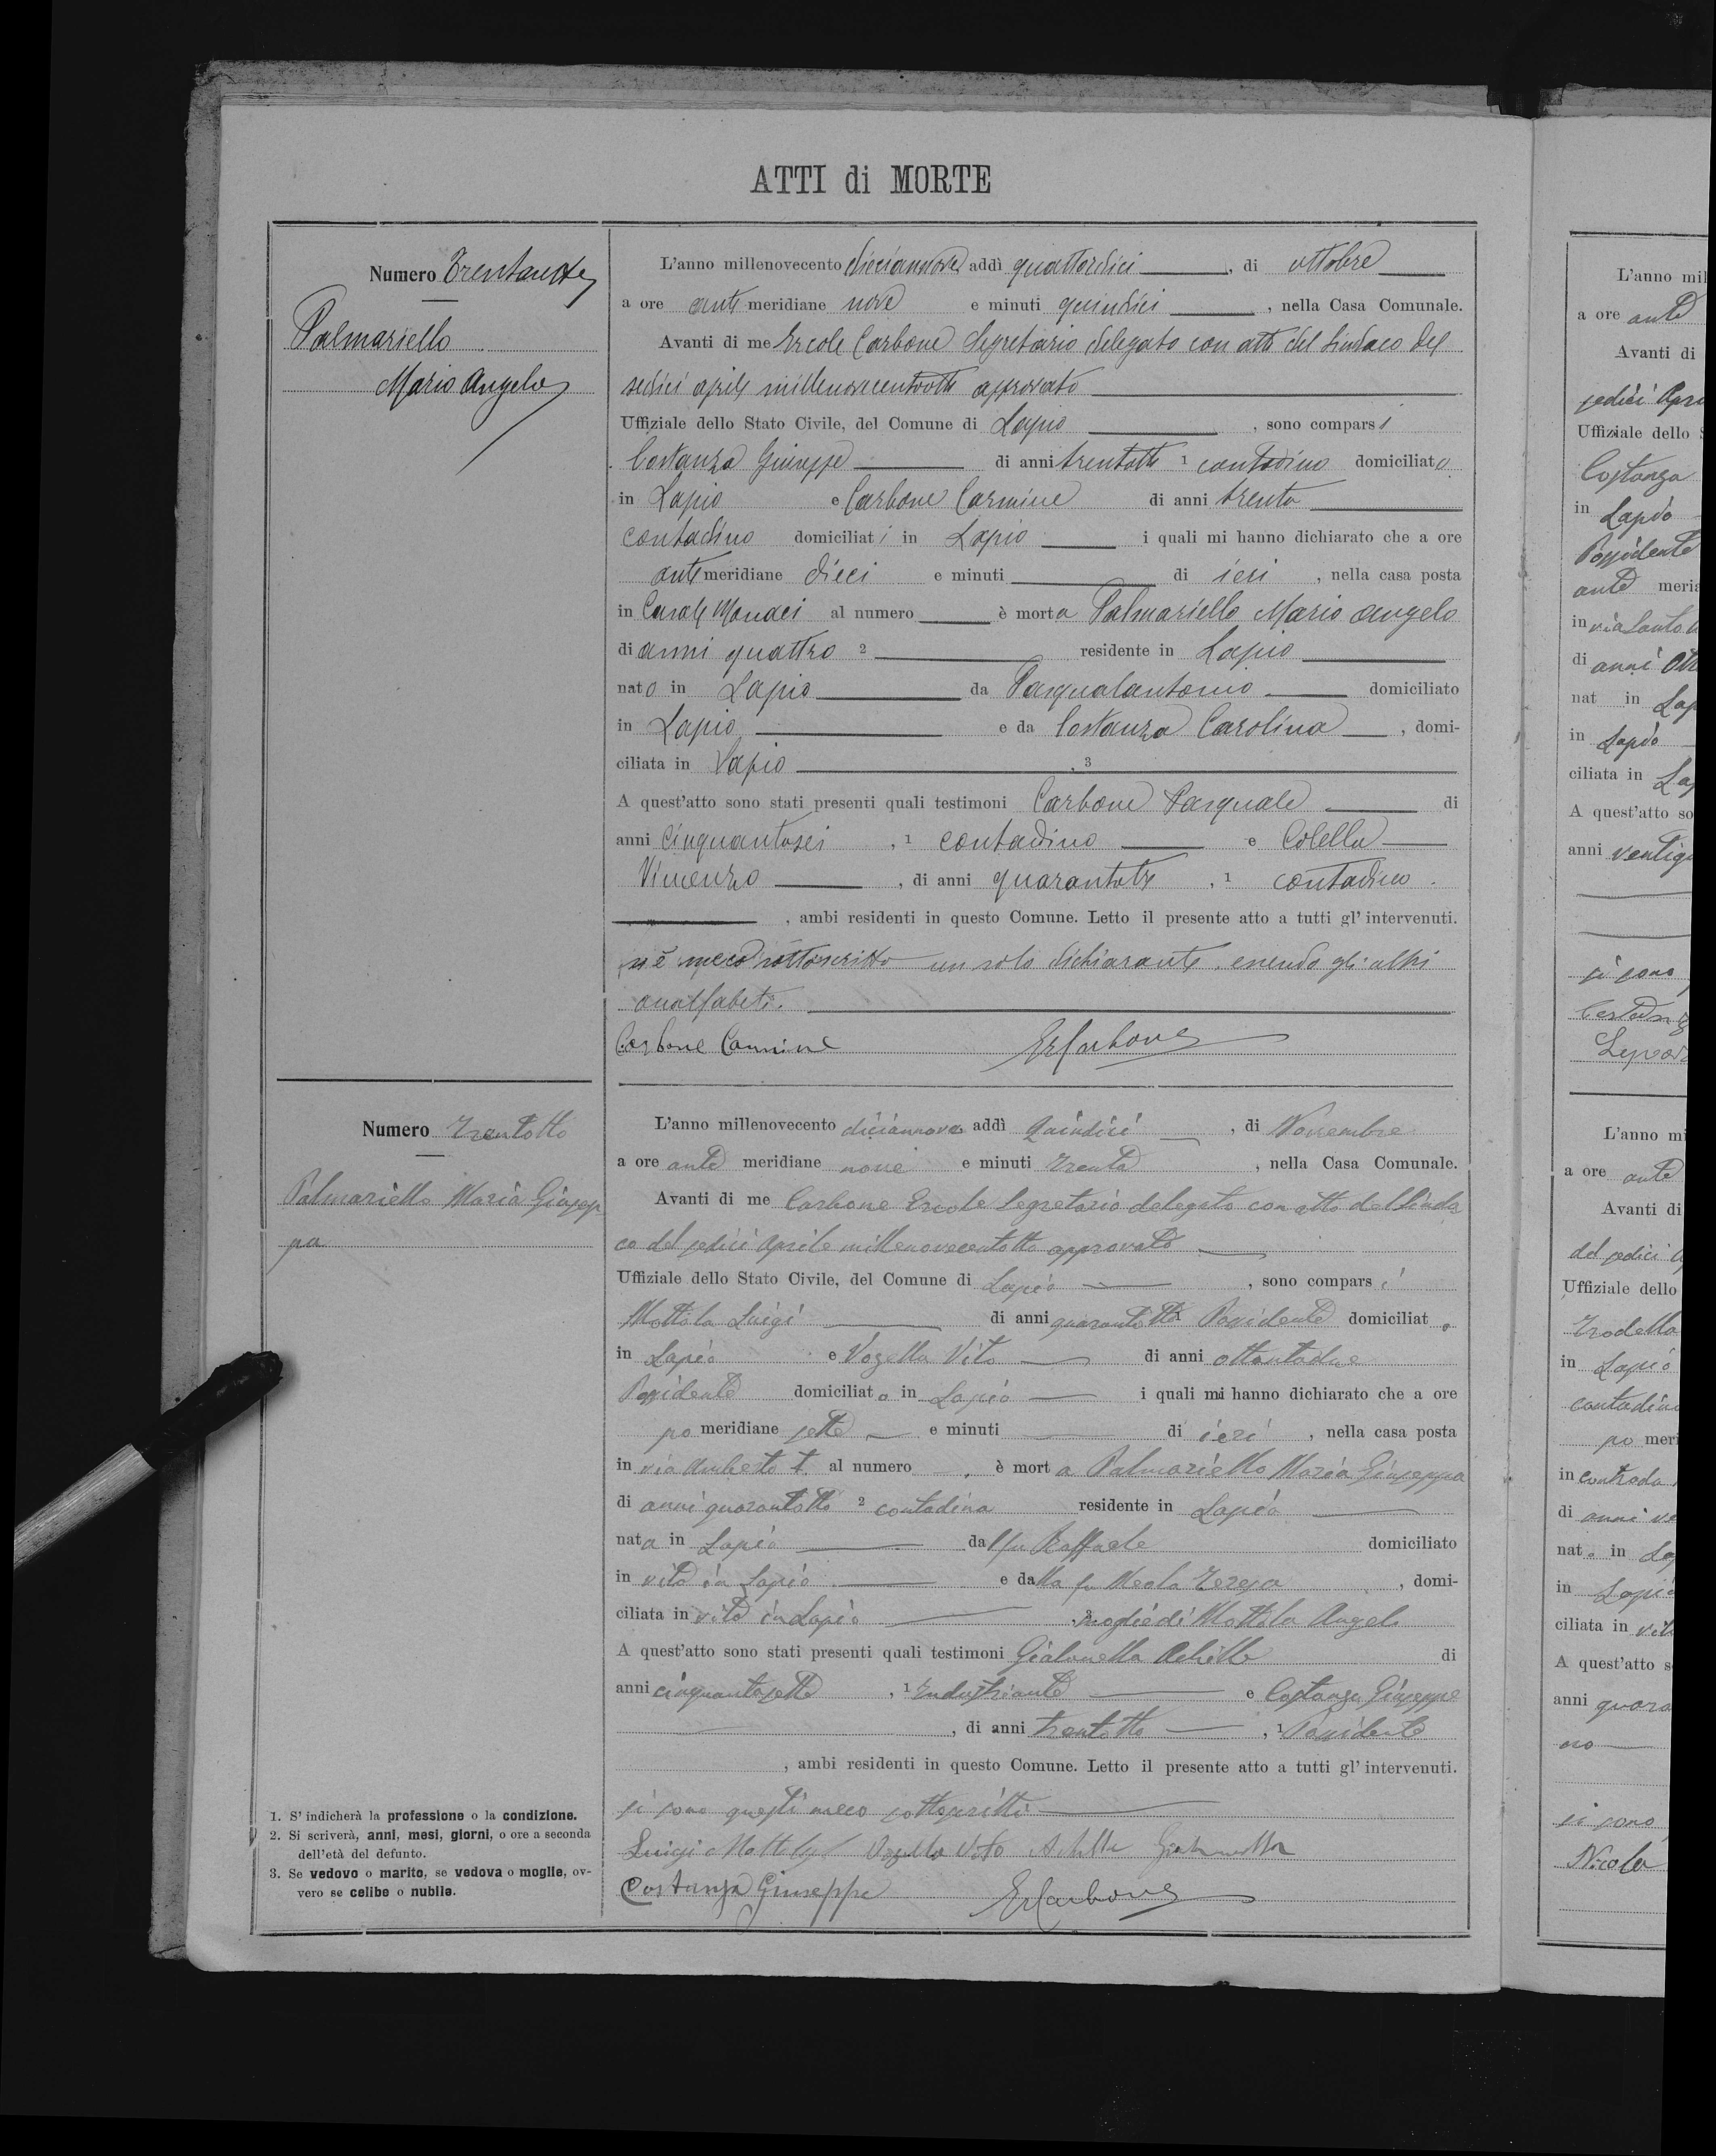 ATTI di MORTE
Numero
Palmariello
Mario Angelo
L'anno millenovecento diciannove addì quattordici, di ottobre
a ore ante meridiane nove e minuti quindici, nella Casa Comunale.
Avanti di me Ercole Carbone Segretario delegato con atto del Sindaco del
sedici aprile millenovecentootto approvato
Uffiziale dello Stato Civile, del Comune di Lapio, sono comparsi
Costanza Giuseppe di anni trentotto 1 contadino domiciliato
in Lapio e Carbone Carmine di anni trenta
contadino domiciliati in Lapio i quali mi hanno dichiarato che a ore
ante meridiane dieci e minuti di ieri, nella casa posta
in Casale al numero è morta Palmariello Mario Angelo
di anni quattro 2 residente in Lapio
nato in Lapio da Pasqualantonio domiciliato
in Lapio e da Costanza Carolina, domi-
ciliata in Lapio, 3
A quest'atto sono stati presenti quali testimoni Carbone Pasquale di
anni cinquantasei, 1 contadino e Colella
Vincenzo, di anni, 1 contadino.
, ambi residenti in questo Comune. Letto il presente atto a tutti gl' intervenuti.
si è meco sottoscritto un solo dichiarante, essendo gli altri
analfabeti.
Carbone Carmine ErCarbone
Numero Trentotto
Palmariello Maria Giusep
pa
L'anno millenovecento diciannove addì Quindici, di Novembre
a ore ante meridiane nove e minuti trenta, nella Casa Comunale.
Avanti di me Carbone Ercole Segretario delegato con atto del Sinda
co del sedici Aprile millenovecentotto approvato
Uffiziale dello Stato Civile, del Comune di Lapio, sono comparsi
Mottola Luigi di anni quarantotto 1 Possidente domiciliato
in Lapio e Vozella Vito di anni ottantadue
Possidente domiciliato in Lapio i quali mi hanno dichiarato che a ore
po meridiane sette e minuti di ieri, nella casa posta
in via Umberto I. al numero, è morta Palmariello Maria Giuseppa
di anni quarantotto 2 contadina residente in Lapio
nata in Lapio dal fu Raffaele domiciliato
in vita in Lapio e dalla fu Meola Teresa, domi-
ciliata in vita in Lapio, 3. moglie di Mottola Angelo
A quest'atto sono stati presenti quali testimoni Gialonella Achille di
anni cinquantasette, 1 Industriante e Costanza Giuseppe
, di anni trentotto, 1 Possidente
, ambi residenti in questo Comune. Letto il presente atto a tutti gl' intervenuti.
si sono questi meco sottoscritti
Luigi Mottola Vozella Vito Achille
Costanza Giuseppe ErCarbone
1. S' indicherà la professione o la condizione.
2. Si scriverà, anni, mesi, giorni, o ore a seconda
dell'età del defunto.
3. Se vedovo o marito, se vedova o moglie, ov-
vero se celibe o nubile.
L'anno mil
a ore ante
Avanti di
sedici Apri
Uffiziale dello
Costanza
in Lapio
Possidente
ante meri
in via Santo
di anni
nat in Lap
in Lapio
ciliata in La
A quest'atto so
anni
si sono
L'anno mi
a ore ante
Avanti di
del sedici
Uffiziale dello
in Lapio
contadino
po meri
in contrada
di anni
nat. in La
in Lapio
ciliata in vit
A quest'atto s
anni quara
no
si sono
Nicola